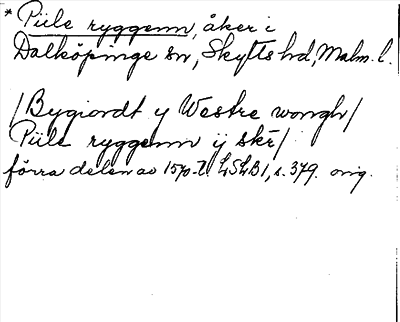 * Piile ryggenn, åker i
Dalköpinge sn, Skytts hd, Malm. l.
/Bygiordt y Westre wongh/
Piile ryggenn ij skr/
förra delen av 1570-t. LSLB1, s. 379. orig.